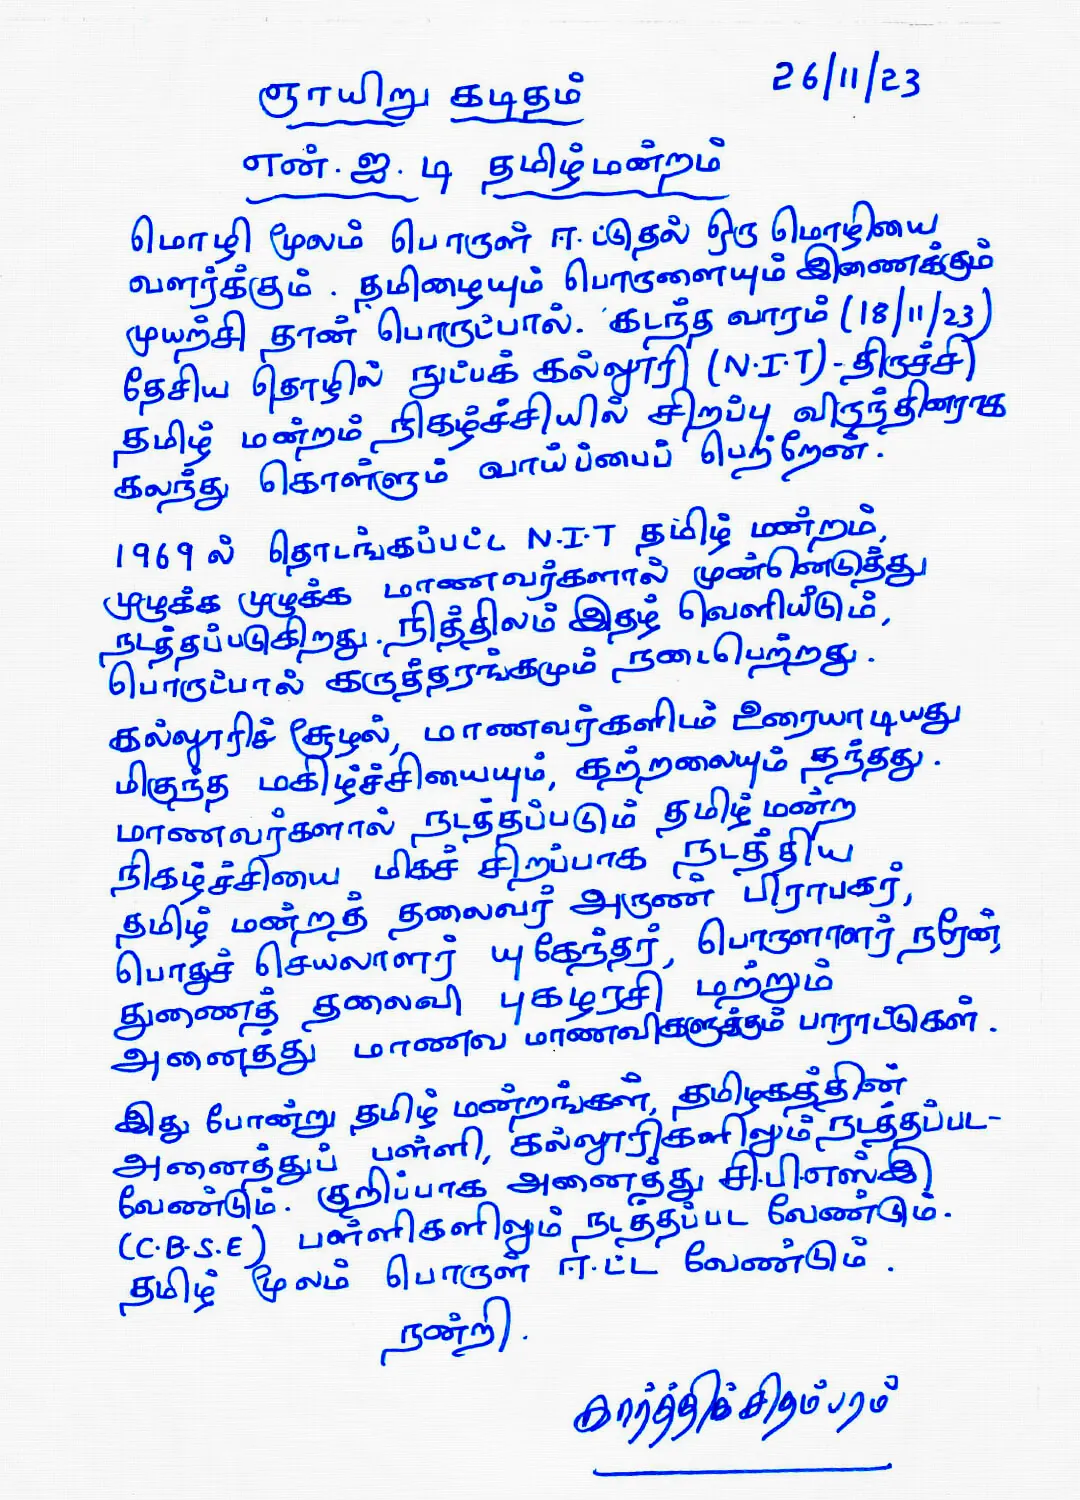 26/11/23
ஞாயிறு கடிதம்
என்.ஐ.டி தமிழ்மன்றம்
மொழி மூலம் பொருள் ஈட்டுதல் ஒரு மொழியை
வளர்க்கும். தமிழையும் பொருளையும் இணைக்கும்
முயற்சி தான் பொருட்பால். கடந்த வாரம் (18/11/23)
தேசிய தொழில் நுட்பக் கல்லூரி (N.I.T)-திருச்சி
தமிழ் மன்றம் நிகழ்ச்சியில் சிறப்பு விருந்தினராக
கலந்து கொள்ளும் வாய்ப்பைப் பெற்றேன்.
1969 ல் தொடங்கப்பட்ட N.I.T தமிழ் மன்றம்,
முழுக்க முழுக்க மாணவர்களால் முன்னெடுத்து
நடத்தப்படுகிறது. நித்திலம் இதழ் வெளியீடும்,
பொருட்பால் கருத்தரங்கமும் நடைபெற்றது.
கல்லூரிச் சூழல், மாணவர்களிடம் உரையாடியது
மிகுந்த மகிழ்ச்சியையும், கற்றலையும் தந்தது.
மாணவர்களால் நடத்தப்படும் தமிழ்மன்ற
நிகழ்ச்சியை மிகச் சிறப்பாக நடத்திய
தமிழ் மன்றத் தலைவர் அருண் பிரபாகர்,
பொதுச் செயலாளர் யுகேந்தர், பொருளாளர் நரேன்,
துணைத் தலைவி புகழரசி மற்றும்
அனைத்து மாணவ மாணவிகளுக்கும் பாராட்டுகள்.
இது போன்று தமிழ் மன்றங்கள், தமிழகத்தின்
அனைத்துப் பள்ளி, கல்லூரிகளிலும் நடத்தப்பட-
வேண்டும். குறிப்பாக அனைத்து சி.பி.எஸ்.இ
(C.B.S.E) பள்ளிகளிலும் நடத்தப்பட வேண்டும்.
தமிழ் மூலம் பொருள் ஈட்ட வேண்டும்.
நன்றி.
கார்த்திக்சிதம்பரம்